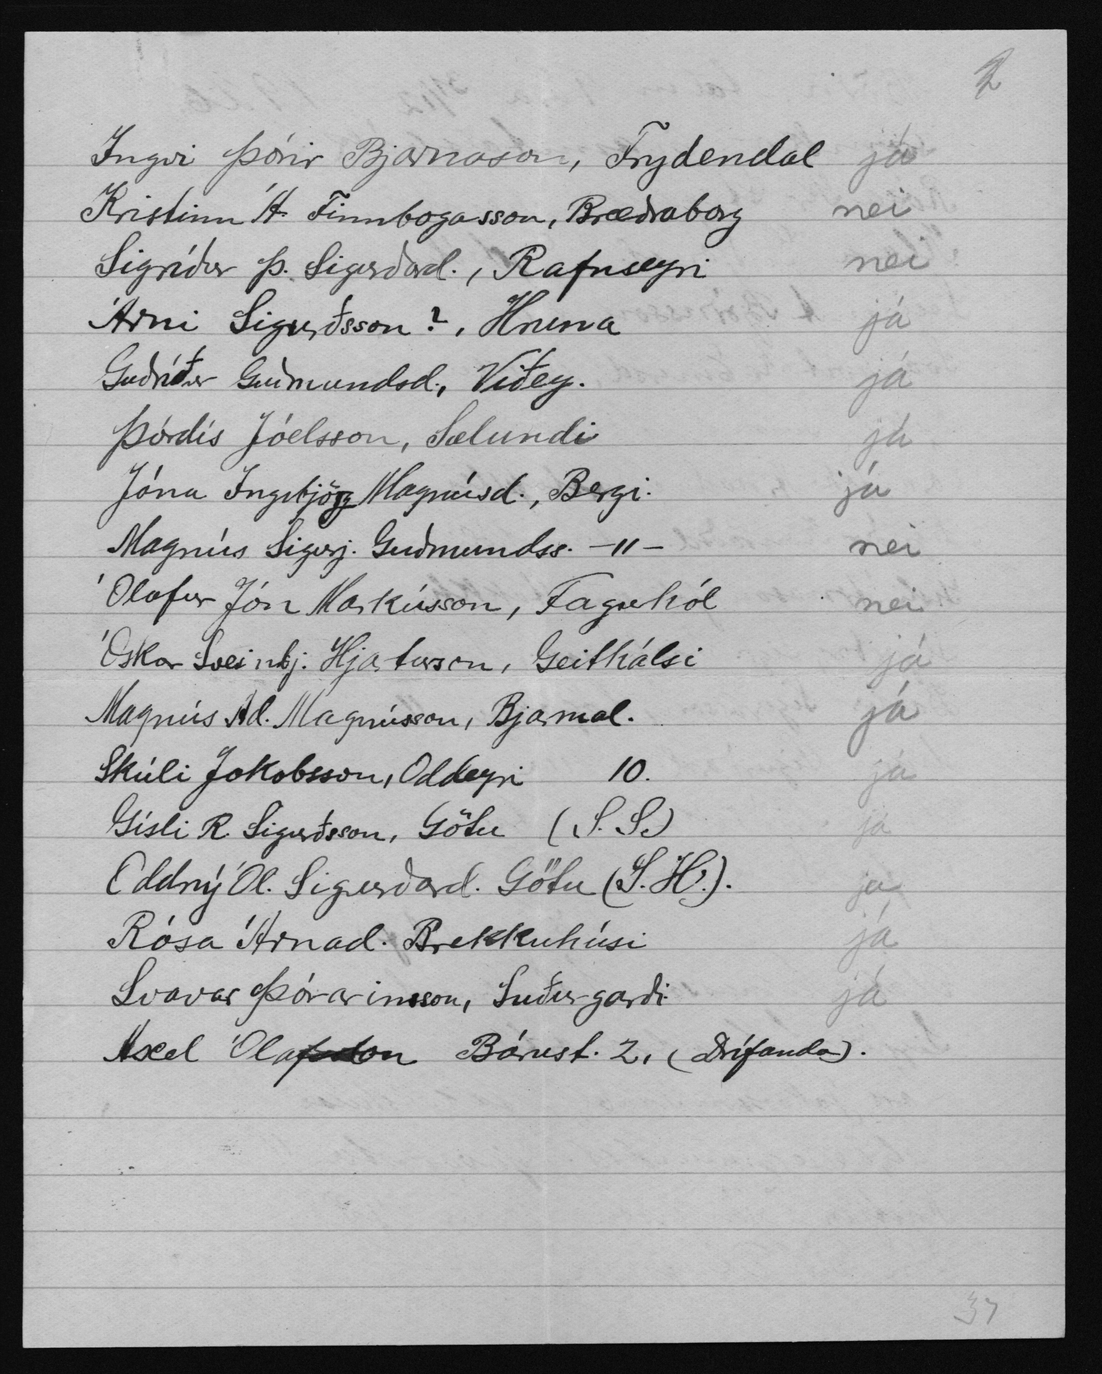 2
Ingvi Þórir Bjarnason, Frydendal já
Kristinn Á. Finnbogasson, Bræðraborg nei
Sigríður Þ. Sigurðard., Rafnseyri nei
Árni Sigurðsson?, Hruna já
Guðríður Guðmundsd., Viðey. já
Þórdís Jóelsson, Sælundi já
Jóna Ingibjörg Magnúsd., Bergi. já
Magnús Sigurj. Guðmundss. -"- nei
Ólafur Jón Markússon, Fagurhól nei
Óskar Sveinbj. Hjatarson, Geithálsi já
Magnús Ad. Magnússon, Bjarmal. já
Skúli Jakobsson, Oddeyri 10. já
Gísli R. Sigurðsson, Götu (S. S.) já
Oddný Ól. Sigurðard. Götu (S. H.). já
Rósa Árnad. Brekkuhúsi já
Svavar Þórarinsson, Suðurgarði já
Axel Óla Bárust. 2, (Drífanda).
37